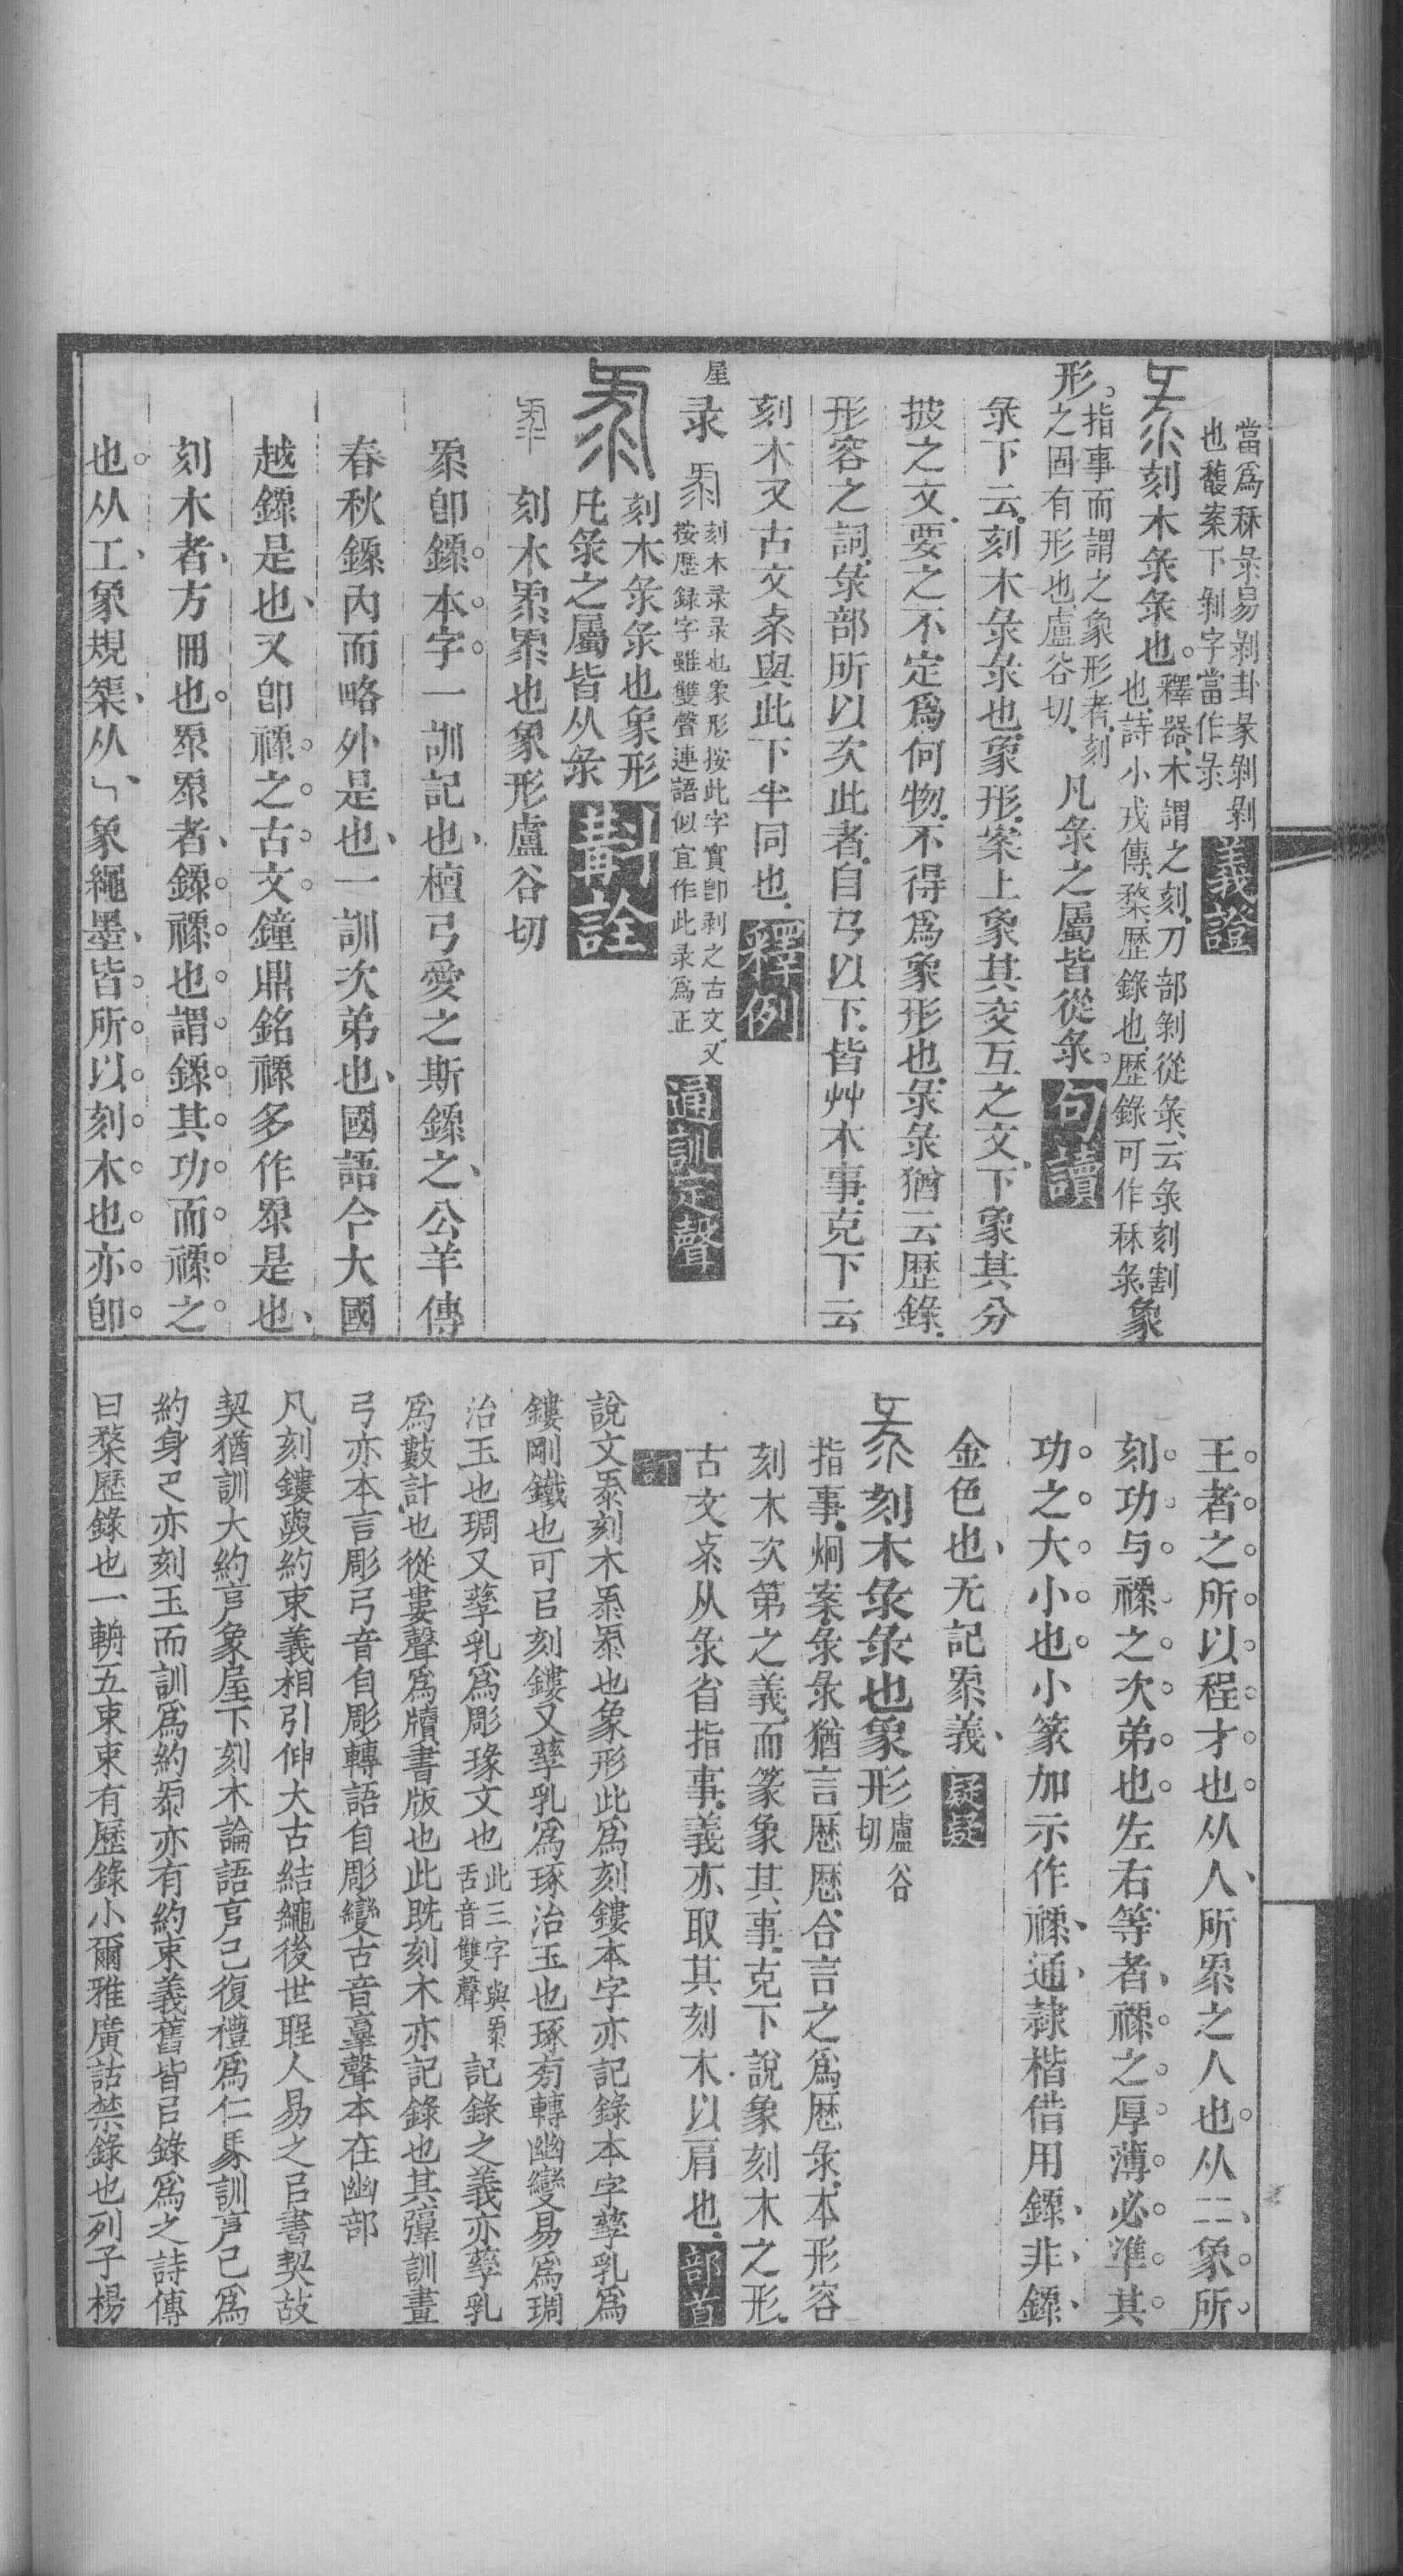 當爲秝彔易剝卦彖剝剝
也馥案下剝字當作彔
義證
刻木彔彔也
釋器木謂之刻刀部剝從彔云彔刻割
也詩小戎傳楘歷錄也歷錄可作秝彔
象
形
指事而謂之象形者刻
之固有形也盧谷切
凡彔之屬皆從彔
句讀
彔下云刻木彔彔也象形案上象其交互之文下象其分
披之文要之不定爲何物不得爲象形也彔彔猶云歷錄
形容之詞彔部所以次此者自𢎘以下皆艸木事克下云
刻木又古文𠅏與此下半同也
釋例
屋
录
刻木录录也象形按此字實卽剥之古文又
按歷録字雖雙聲連語似宜作此录爲正
通訓定聲
刻木彔彔也象形
凡彔之屬皆从彔
詮
刻木彔彔也象形盧谷切
彔卽錄本字一訓記也檀弓愛之斯錄之公羊傳
春秋錄內而略外是也一訓次弟也國語今大國
越錄是也又卽祿之古文鐘鼎銘祿多作彔是也
刻木者方冊也彔彔者錄祿也謂錄其功而祿之
也从工象規榘从乛象繩墨皆所以刻木也亦卽
王者之所以程才也从人所彔之人也从二象所
刻功与祿之次弟也左右等者祿之厚薄必準其
功之大小也小篆加示作祿通隷楷借用錄非錄
金色也无記彔義
疑疑
刻木彔彔也象形
盧谷
切
指事炯案彔彔猶言厯厯合言之爲厯彔本形容
刻木次第之義而篆象其事克下說象刻木之形
古文𠅏从彔省指事義亦取其刻木以肩也
部首
訂
說文彔刻木彔彔也象形此爲刻鏤本字亦記錄本字孳乳爲
鏤剛鐵也可㠯刻鏤又孳乳爲琢治玉也琢旁轉幽變易爲琱
治玉也琱又孳乳爲彫琢文也
此三字與彔
舌音雙聲
記錄之義亦孳乳
爲數計也從婁聲爲牘書版也此既刻木亦記錄也其彇訓畫
弓亦本言彫弓音自彫轉語自彫變古音𦎫聲本在幽部
凡刻鏤㪅約束義相引伸大古結繩後世聖人易之㠯書契故
契猶訓大約克象屋下刻木論語克己復禮爲仁馬訓克己爲
約身㔾亦刻玉而訓爲約彔亦有約束義舊皆㠯錄爲之詩傳
曰楘歷錄也一輈五束束有歷錄小爾雅廣詁禁錄也列子楊